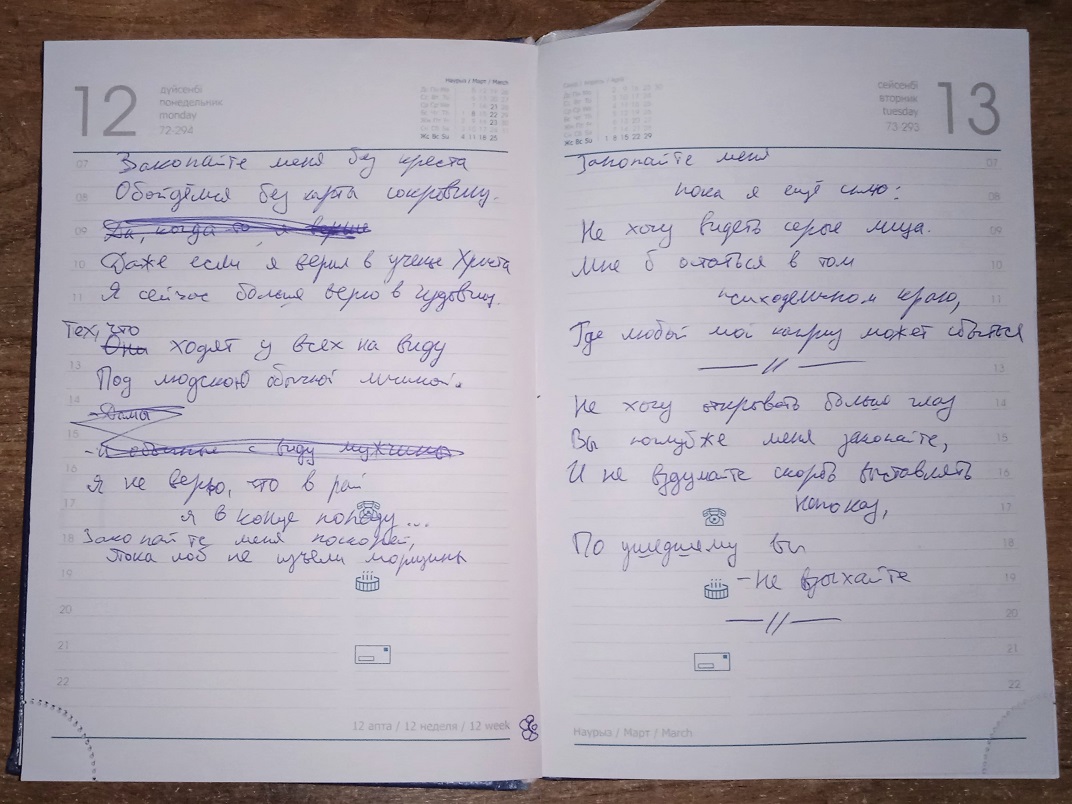 12
дүйсенбі
понедельник
monday
72-294
Наурыз / Март / March
07 Закопайте меня без креста
08 Обойдёмся без карты сокровищ.
09 Да, когда то, я верил
10 Даже если я верил в учение Христа
11 Я сейчас больше верю в чудовищ.
Тех, что
Они ходят у всех на виду
13 Под людскою обычной личиной.
14 - Дамы
15 - И обычные с виду мужчины
16 Я не верю, что в рай
17 я в конце попаду...
18 Закопайте меня поскорей,
Пока лоб не изъели морщины
19
20
21
22
12 апта / 12 неделя / 12 week
13
сейсенбі
вторник
tuesday
73-293
Закопайте меня 07
пока я ещё сплю: 08
Не хочу видеть серые лица. 09
Мне б остаться в том 10
психоделичном краю, 11
Где любой мой каприз может сбыться
—//— 13
Не хочу открывать больше глаз 14
Вы поглубже меня закопайте, 15
И не вздумайте скорбь выставлять 16
напоказ, 17
По ушедшему вы 18
- Не вздыхайте 19
—//— 20
21
22
Наурыз / Март / March